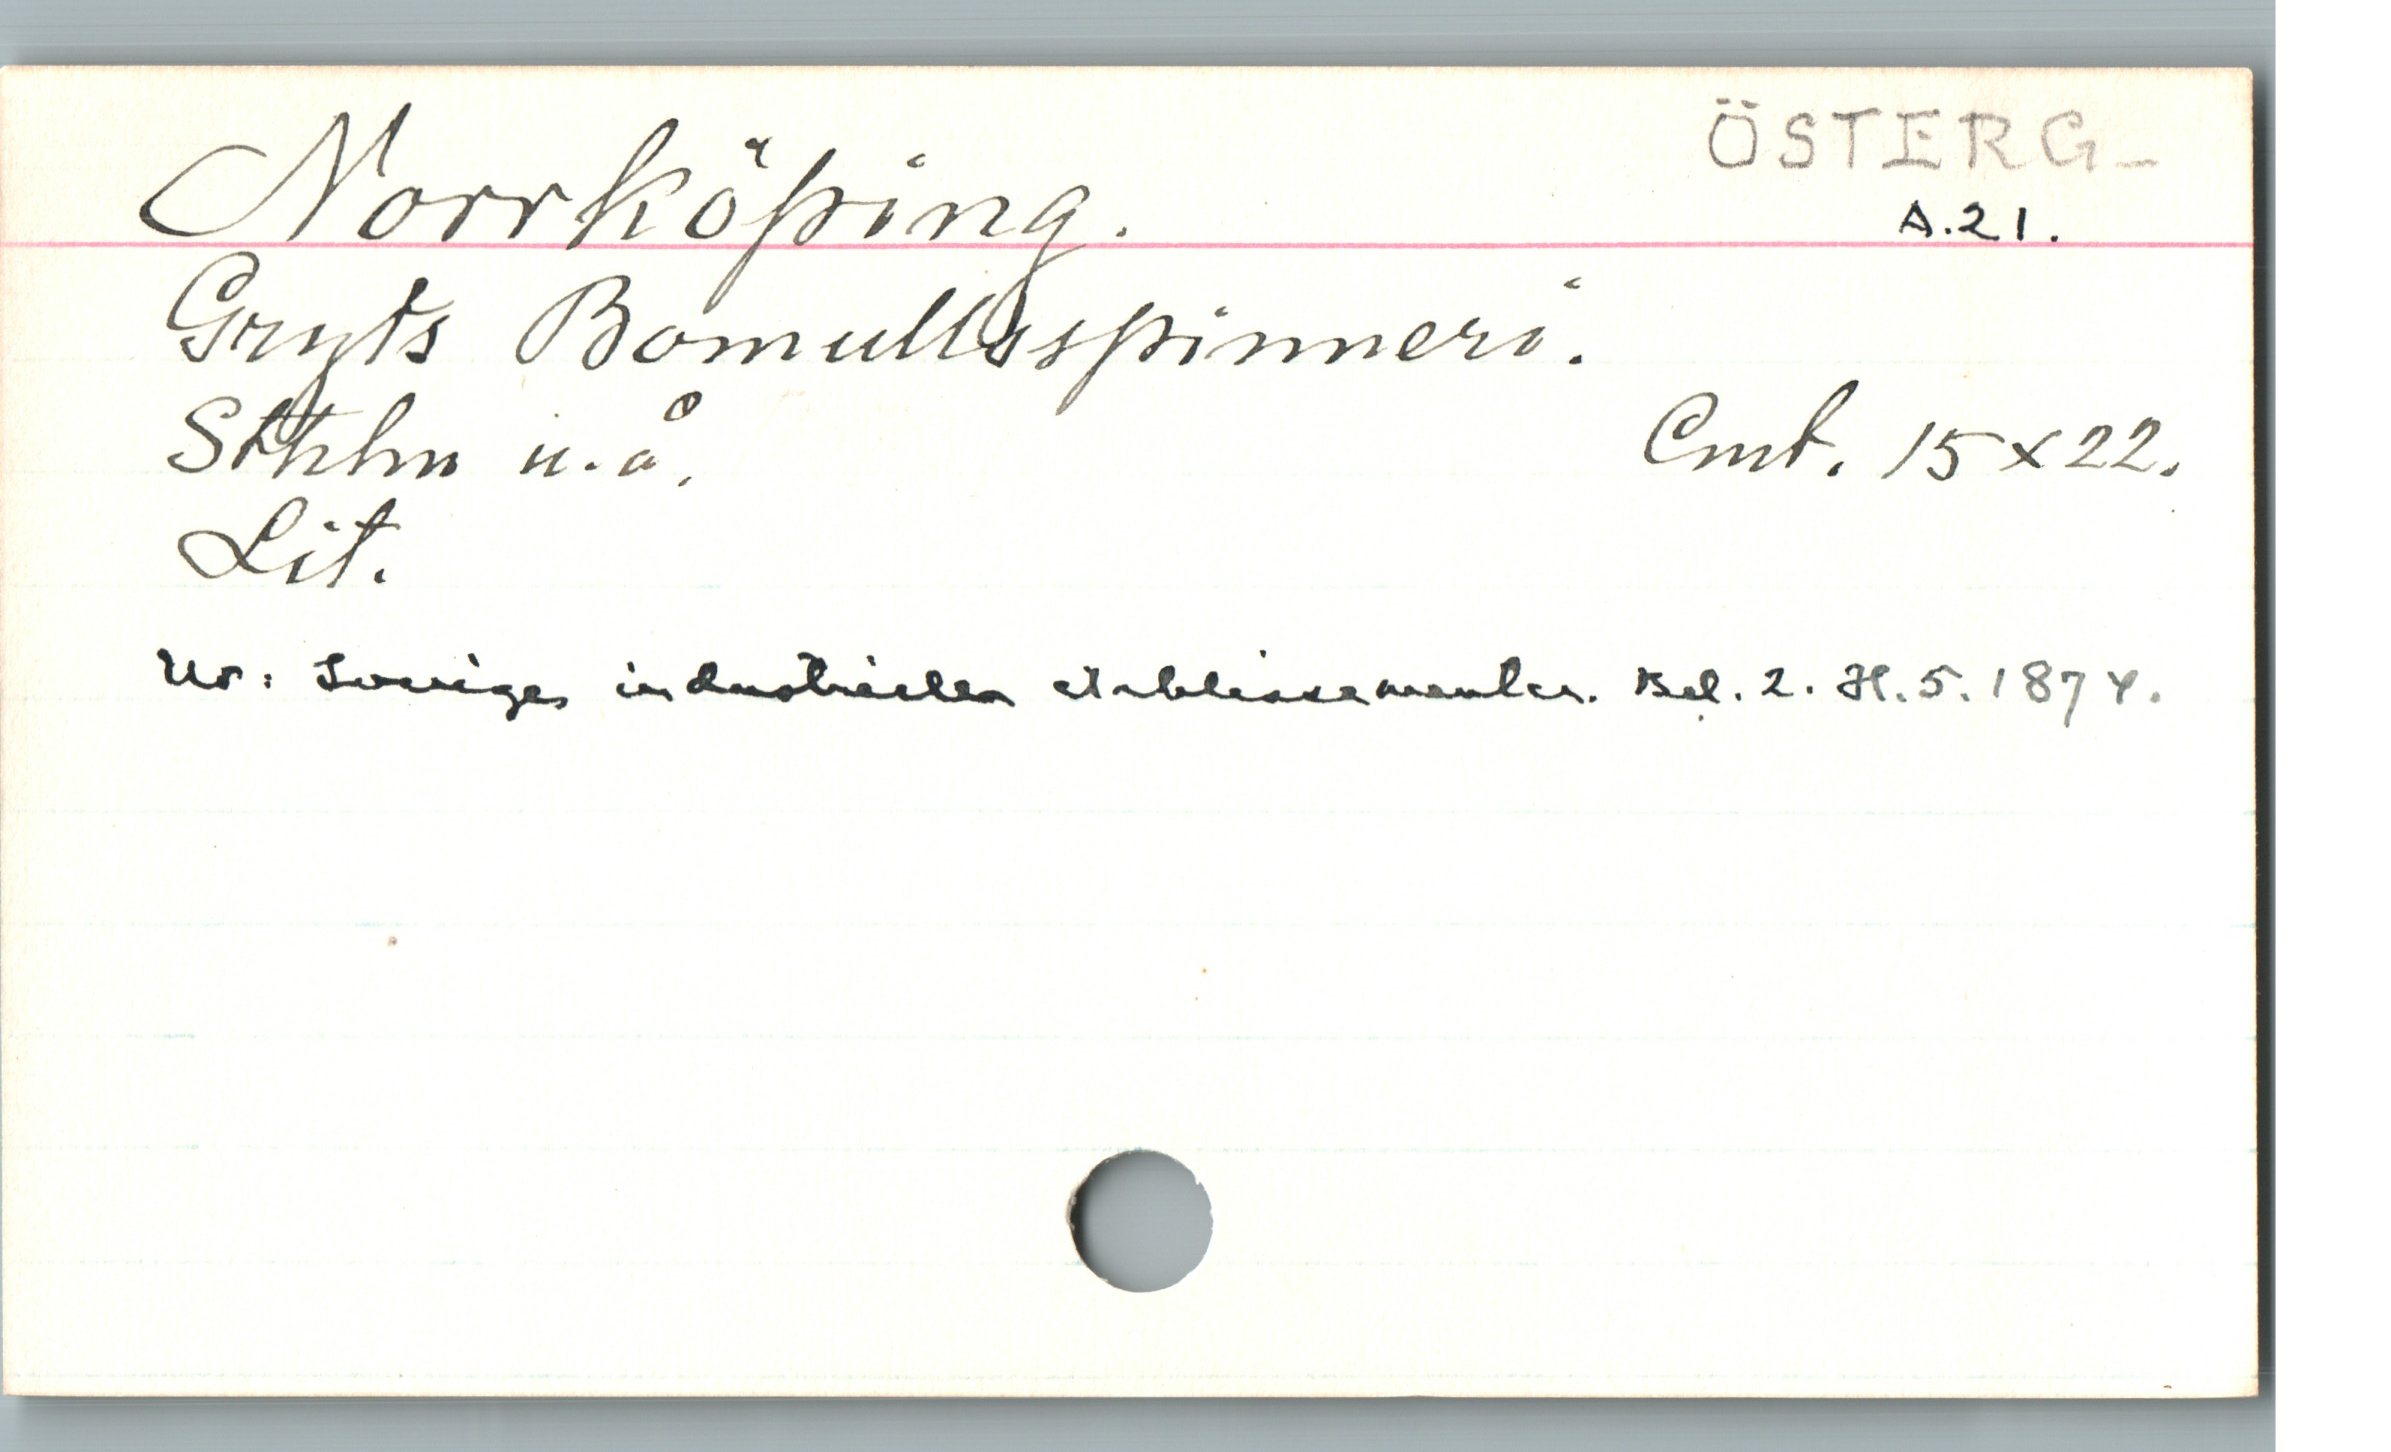 Norrköping.
ÖSTERG_
A.21.
Gryts Bomullsspinneri.
Sthlm u.å. Cmt. 15x22.
Lit.
Ur: Sveriges industriella etablissementer. Bd. 2. H. 5. 1874.